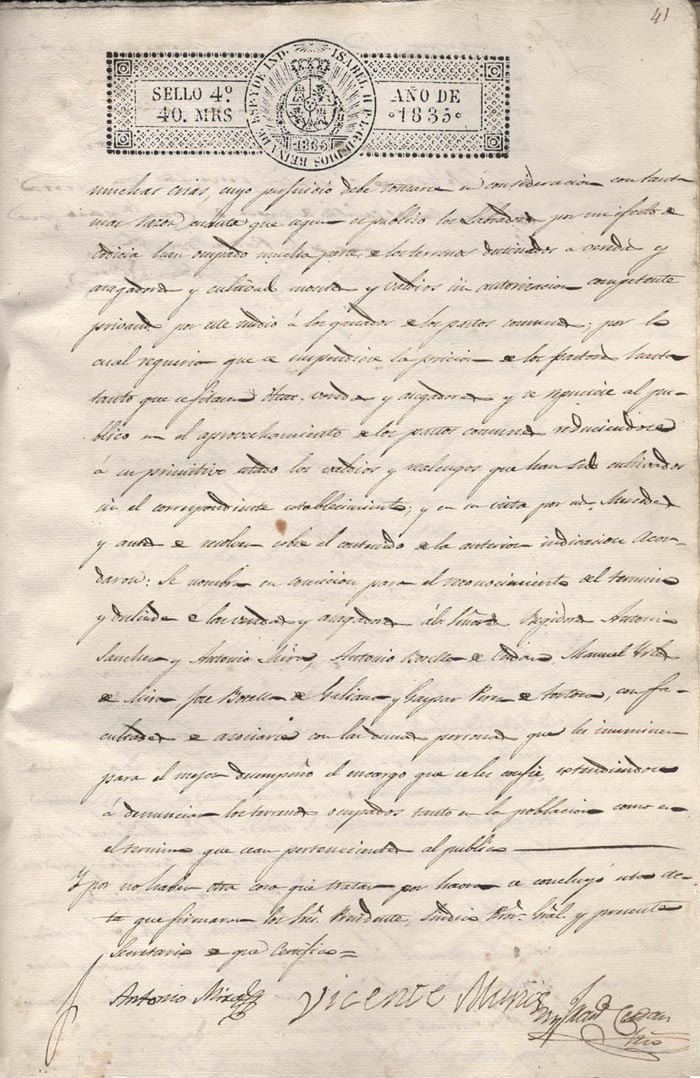 41
SELLO 4º
40. MRS
ISABEL II P. L. G. DE DIOS REINA DE ESP. Y DE IND.
1835
AÑO DE
1835
muchas crias, cuyo perjuicio debe tomarse en consideracion con tanta
mas razon cuanto que segun es publico los Labradores por un efecto de
codicia han ocupado mucha parte de los terrenos destinados a veredas y
asagadores y cultivad montes y valdios sin autorizacion competente
privando por este medio á los ganados de los pastos comunes, por lo
cual requeria que se suspendiese la de los pastores hasta
tanto que se fitasen otras veredas y asagadores y se reponga al pu-
blico en el aprovechamiento de los pastos comunes reduciendose
á su primitivo estado los valdios y realengos que han sido cultivados
sin el correspondiente establecimiento; y en su vista por sus Mercedes
y antes de resolver sobre el contenido de la anterior indicacion Acor-
daron: Se nombra en comicion para el reconocimiento del termino
y deslinde de las veredas y asagadores á los Señores Regidores Antonio
Sanchez y Antonio Mira, Antonio Borella de Cerdan, Manuel
de Mira, José Borella de Galiana y Gaspar Perez de Tortosa, con fa-
cultades de asociarse con las demas personas que les
para el mejor desempeño el encargo que se les confie, estendiendose
á denunciar los terrenos ocupados tanto en la poblacion como en
el termino que sean pertenecientes al publico
Y por no haber otra cosa que tratar por haora se concluyó esta ac-
ta que firmaron los Sres. Presidente, Sindico Pror. Gral. y presente
Secretario de que Certifico =
Antonio Mira
Vicente Muñoz
Cerdan
Srio